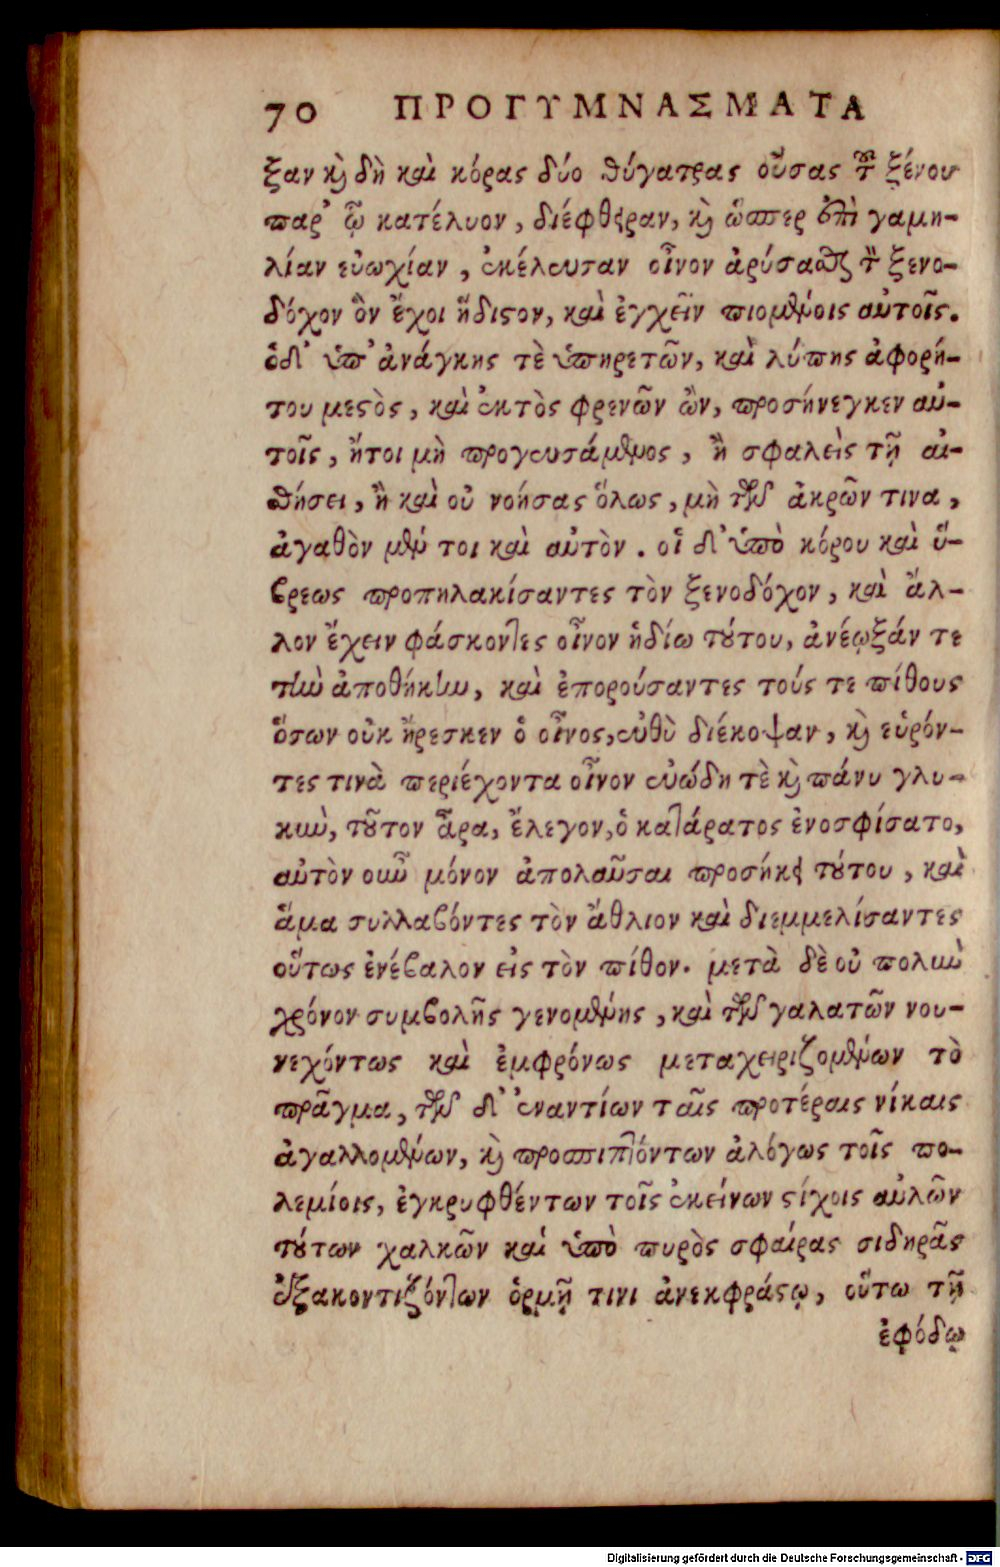 70 ΠΡΟΓΥΜΝΑΣΜΑΤΑ
ξαν κὶ δὴ καὶ κόρας δύο θύγατρας οὖσας τοῦ ξένου
παρ' ᾧ κατέλυον, διέφθειραν, κὶ ὥσπερ ἐπὶ γαμη-
λίαν εὐωχίαν, ἐκέλευσαν οἶνον ἀρύσασθαι τὸν ξενο-
δόχον ὃν ἔχοι ἥδιστον, καὶ ἐγχεῖν πιομένοις αὐτοῖς.
ὁδ' ὑπ' ἀνάγκης τὲ ὑπηρετῶν, καὶ λύπης ἀφορή-
του μεστὸς, καὶ ἐκτὸς φρενῶν ὢν, προσήνεγκεν αὐ-
τοῖς, ἤτοι μὴ προγευσάμενος, ἢ σφαλεὶς τῇ αἰ-
σθήσει, ἢ καὶ οὐ νοήσας ὅλως, μὴ τῶν ἀκρῶν τινα,
ἀγαθὸν μέν τοι καὶ αὐτὸν. οἱ δ' ὑπὸ κόρου καὶ ὕ-
βρεως προπηλακίσαντες τὸν ξενοδόχον, καὶ ἄλ-
λον ἔχειν φάσκοντες οἶνον ἡδίω τούτου, ἀνέῳξάν τε
τὴν ἀποθήκην, καὶ ἐπορούσαντες τούς τε πίθους
ὅσων οὐκ ἤρεσκεν ὁ οἶνος, εὐθὺ διέκοψαν, κὶ εὑρόν-
τες τινὰ περιέχοντα οἶνον εὐώδη τὲ κὶ πάνυ γλυ-
κὺν, τοῦτον ἄρα, ἔλεγον, ὁ κατάρατος ἐνοσφίσατο,
αὐτὸν οὖν μόνον ἀπολαῦσαι προσήκει τούτου, καὶ
ἅμα συλλαβόντες τὸν ἄθλιον καὶ διεμμελίσαντες
οὕτως ἐνέβαλον εἰς τὸν πίθον. μετὰ δὲ οὐ πολὺν
χρόνον συμβολῆς γενομένης, καὶ τῶν γαλατῶν νου-
νεχόντως καὶ ἐμφρόνως μεταχειριζομένων τὸ
πρᾶγμα, τῶν δ' ἐναντίων ταῖς προτέραις νίκαις
ἀγαλλομένων, κὶ προσπιπτόντων ἀλόγως τοῖς πο-
λεμίοις, ἐγκρυφθέντων τοῖς ἐκείνων στίχοις αὐλῶν
τούτων χαλκῶν καὶ ὑπὸ πυρὸς σφαίρας σιδηρᾶς
ἐξακοντιζόντων ὁρμῇ τινι ἀνεκφράστῳ, οὕτω τῇ
ἐφόδῳ
Digitalisierung gefördert durch die Deutsche Forschungsgemeinschaft - DFG